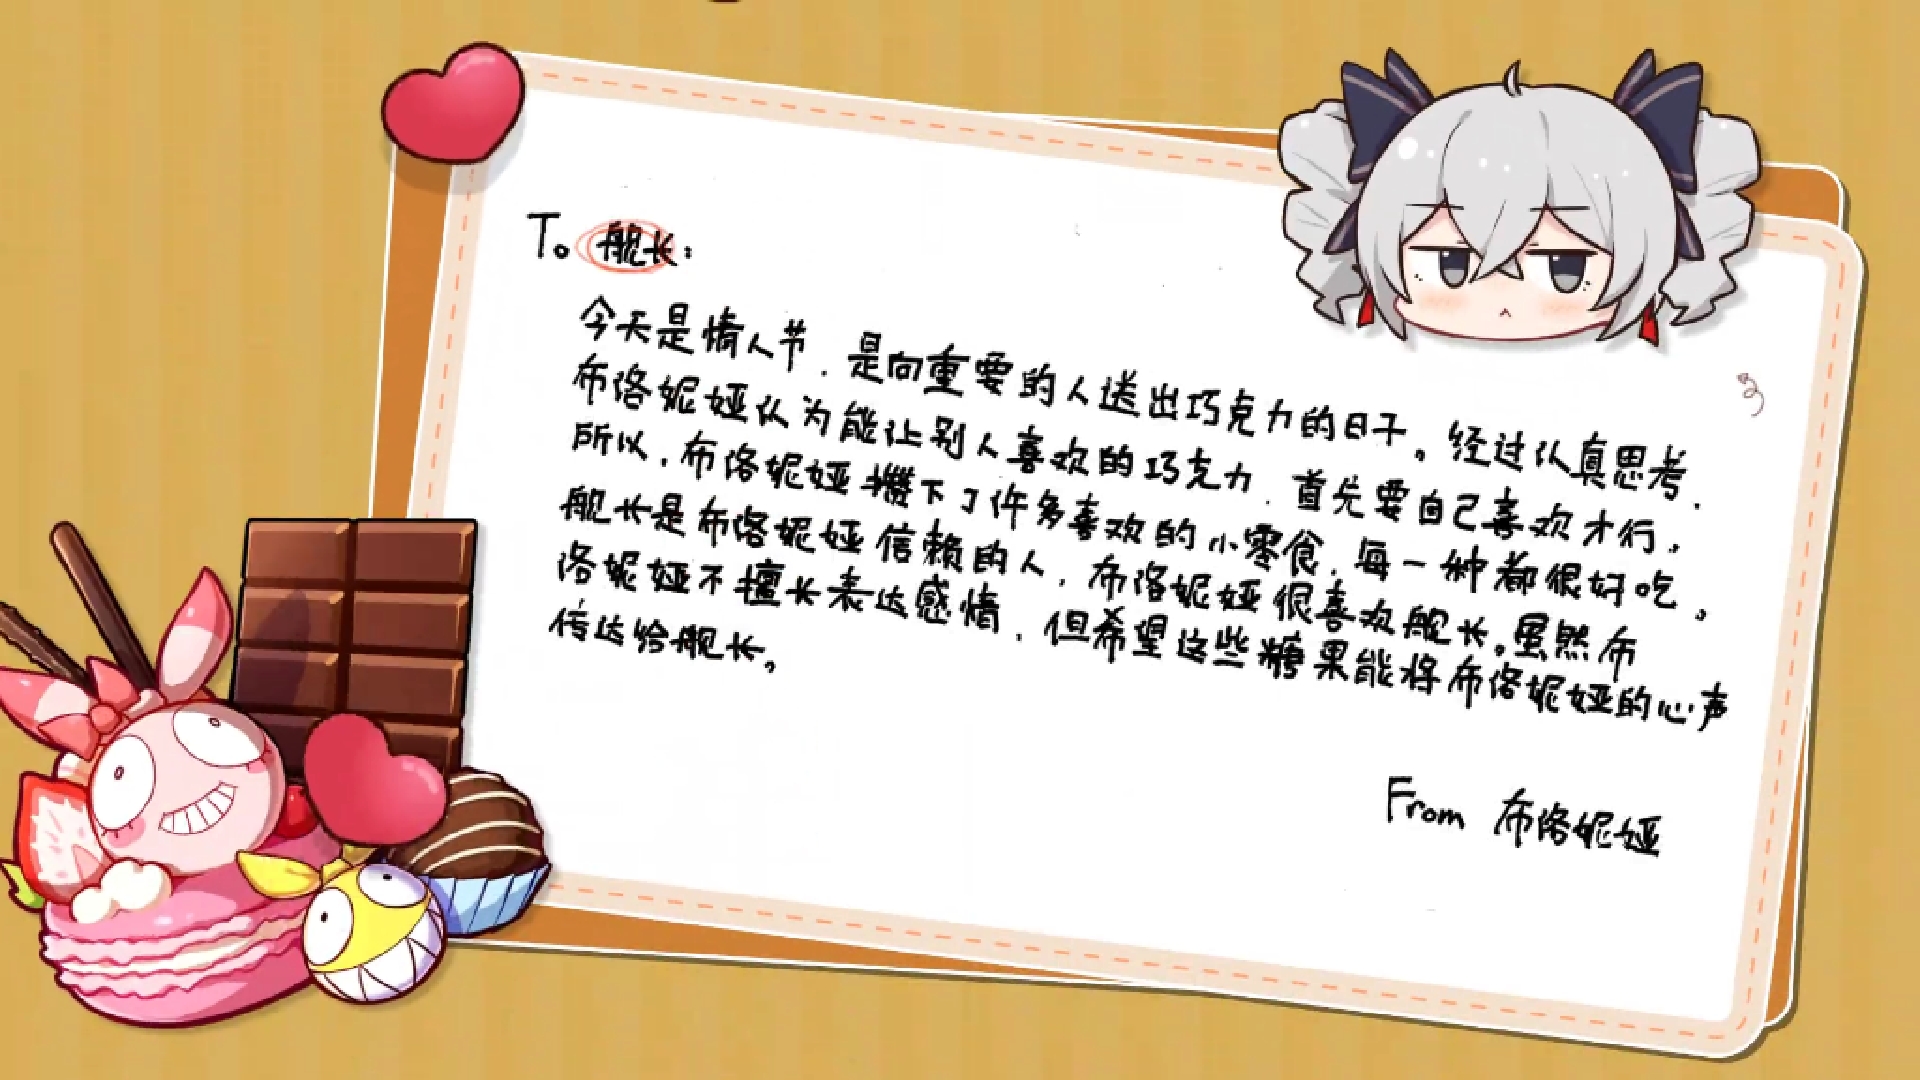 To 舰长:
今天是情人节，是向重要的人送出巧克力的日子。经过认真思考，
布洛妮娅认为能让别人喜欢的巧克力，首先要自己喜欢才行。
所以，布洛妮娅攒下了许多喜欢的小零食，每一种都很好吃。
舰长是布洛妮娅信赖的人，布洛妮娅很喜欢舰长。虽然布
洛妮娅不擅长表达感情，但希望这些糖果能将布洛妮娅的心声
传达给舰长。
From 布洛妮娅